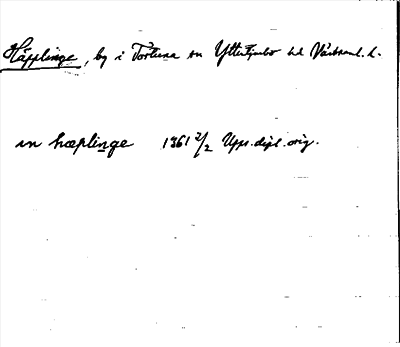 Häpplinge, by i Tortuna sn Yttertjurbo hd Västmanl. l.
in hæplinge 1361 2/2 Upps. dipl. orig.